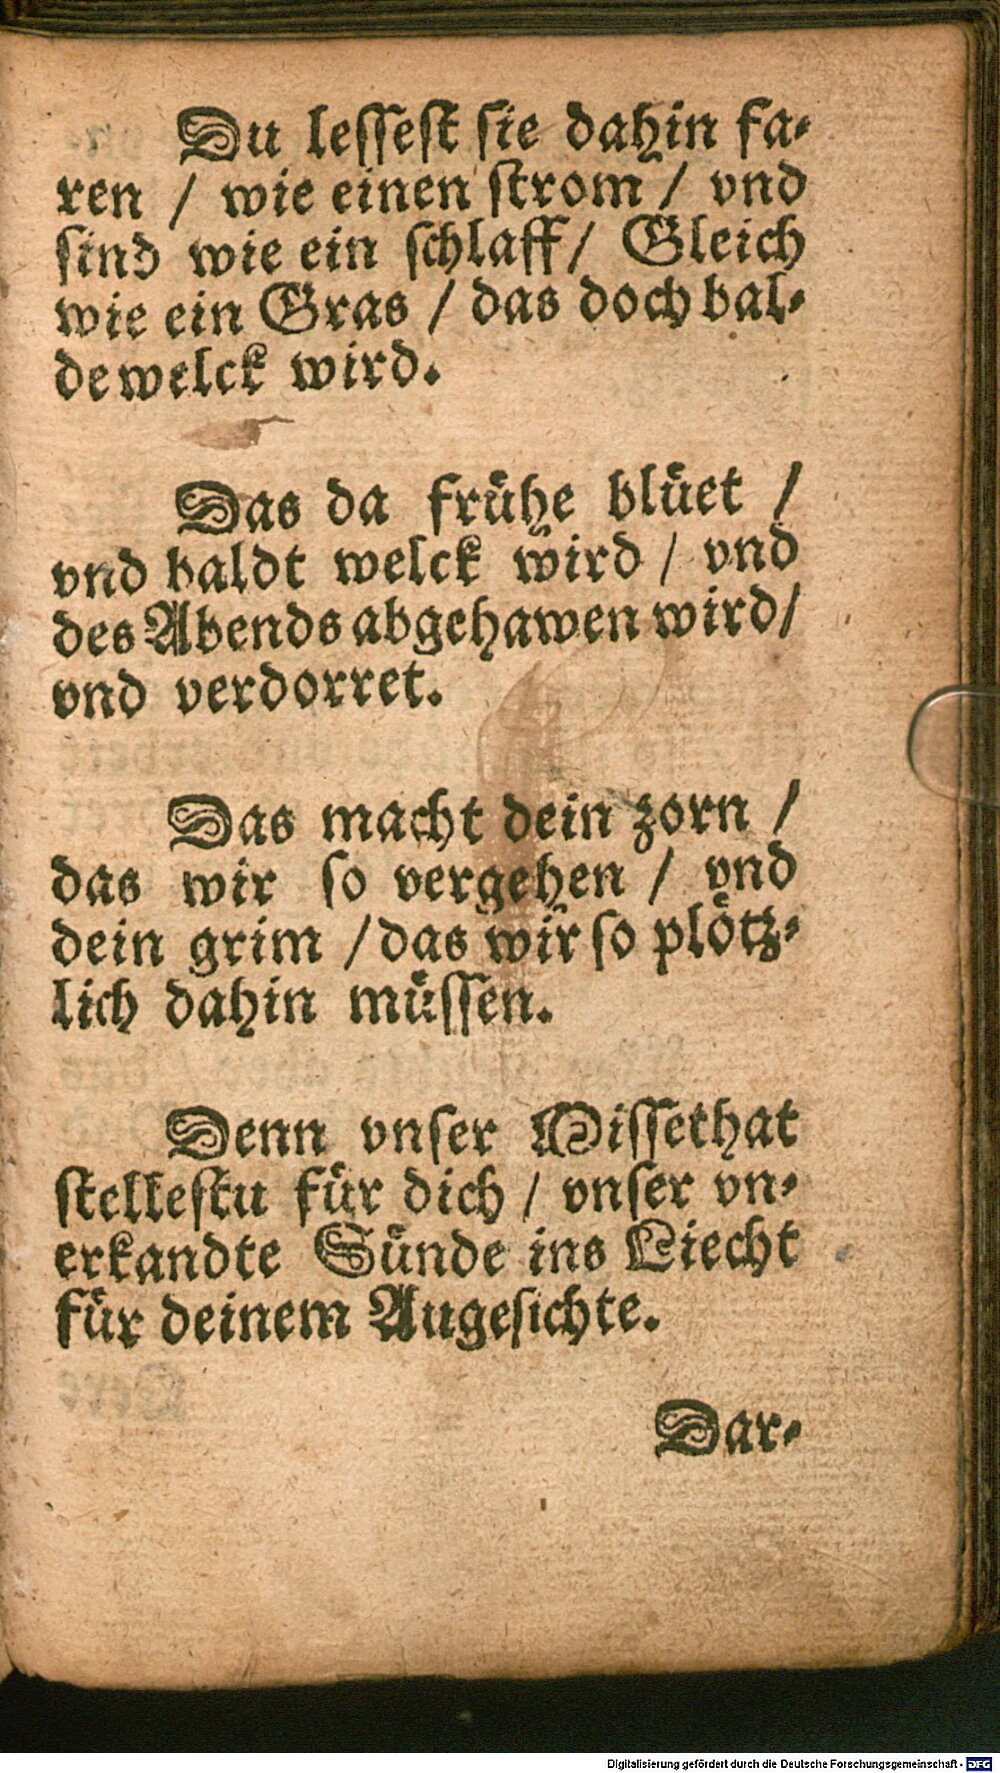 Du leſſeſt ſie dahin fa⸗
ren / wie einen ſtrom / vnd
ſind wie ein ſchlaff / Gleich
wie ein Gras / das doch bal⸗
de welck wird.
Das da frühe blüet /
vnd baldt welck wird / vnd
des Abends abgehawen wird /
vnd verdorret.
Das macht dein zorn /
das wir ſo vergehen / vnd
dein grim / das wir ſo plötz⸗
lich dahin müſſen.
Denn vnſer Miſſethat
ſtelleſtu für dich / vnſer vn⸗
erkandte Sünde ins Liecht
für deinem Augeſichte.
Dar⸗
Digitalisierung gefördert durch die Deutsche Forschungsgemeinschaft - DFG